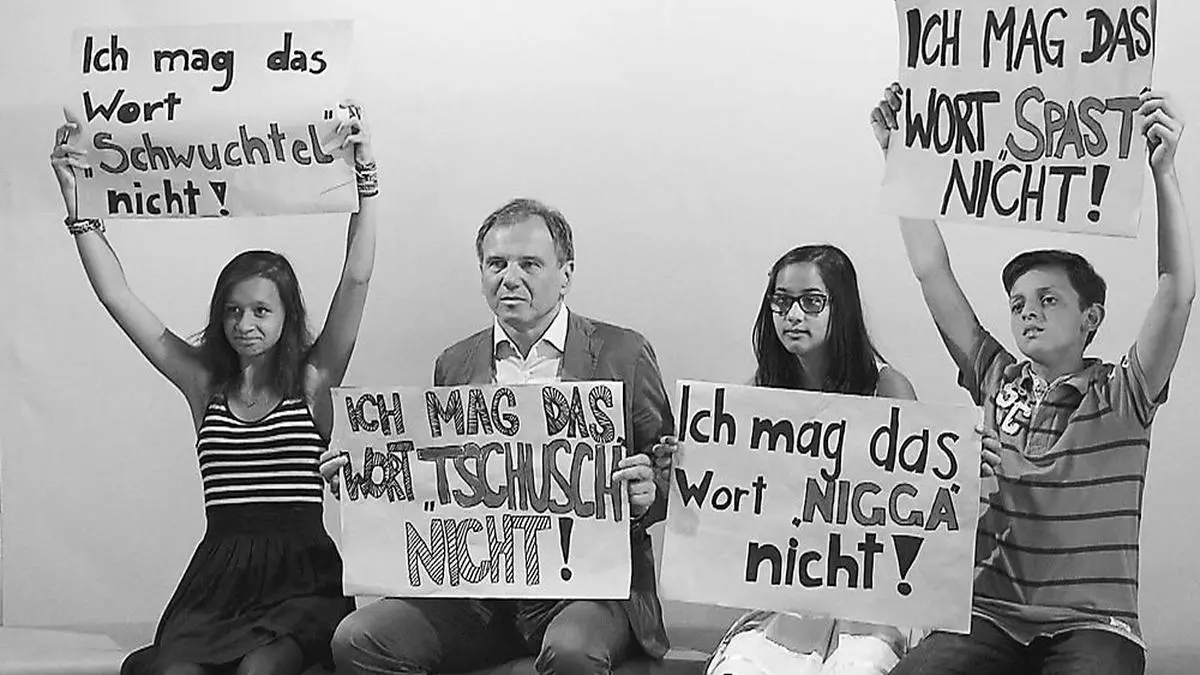 Ich mag das
Wort
„Schwuchtel"
nicht!
ICH MAG DAS
WORT „TSCHUSCH"
NICHT!
Ich mag das
Wort „NIGGA"
nicht!
ICH MAG DAS
WORT „SPAST"
NICHT!
SC